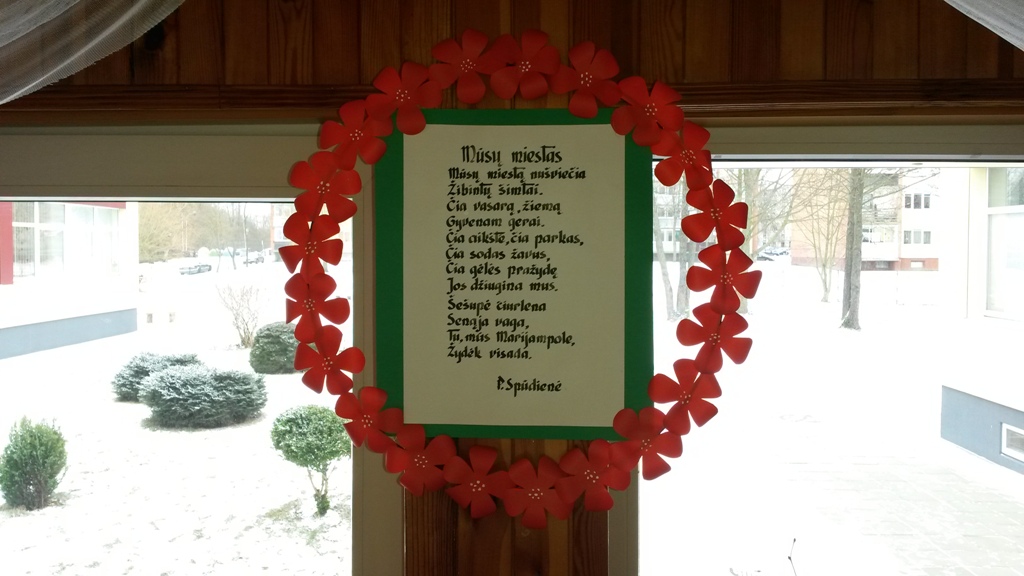 Mūsų miestas
Mūsų miestą nušviečia
Žibintų šimtai.
Čia vasarą, žiemą
Gyvenam gerai.
Čia aikštė, čia parkas,
Čia sodas žavus,
Čia gėlės pražydę
Jos džiugina mus.
Šešupė čiurlena
Senąja vaga,
Tu, mūs Marijampole,
Žydėk visada.
P. Spūdienė